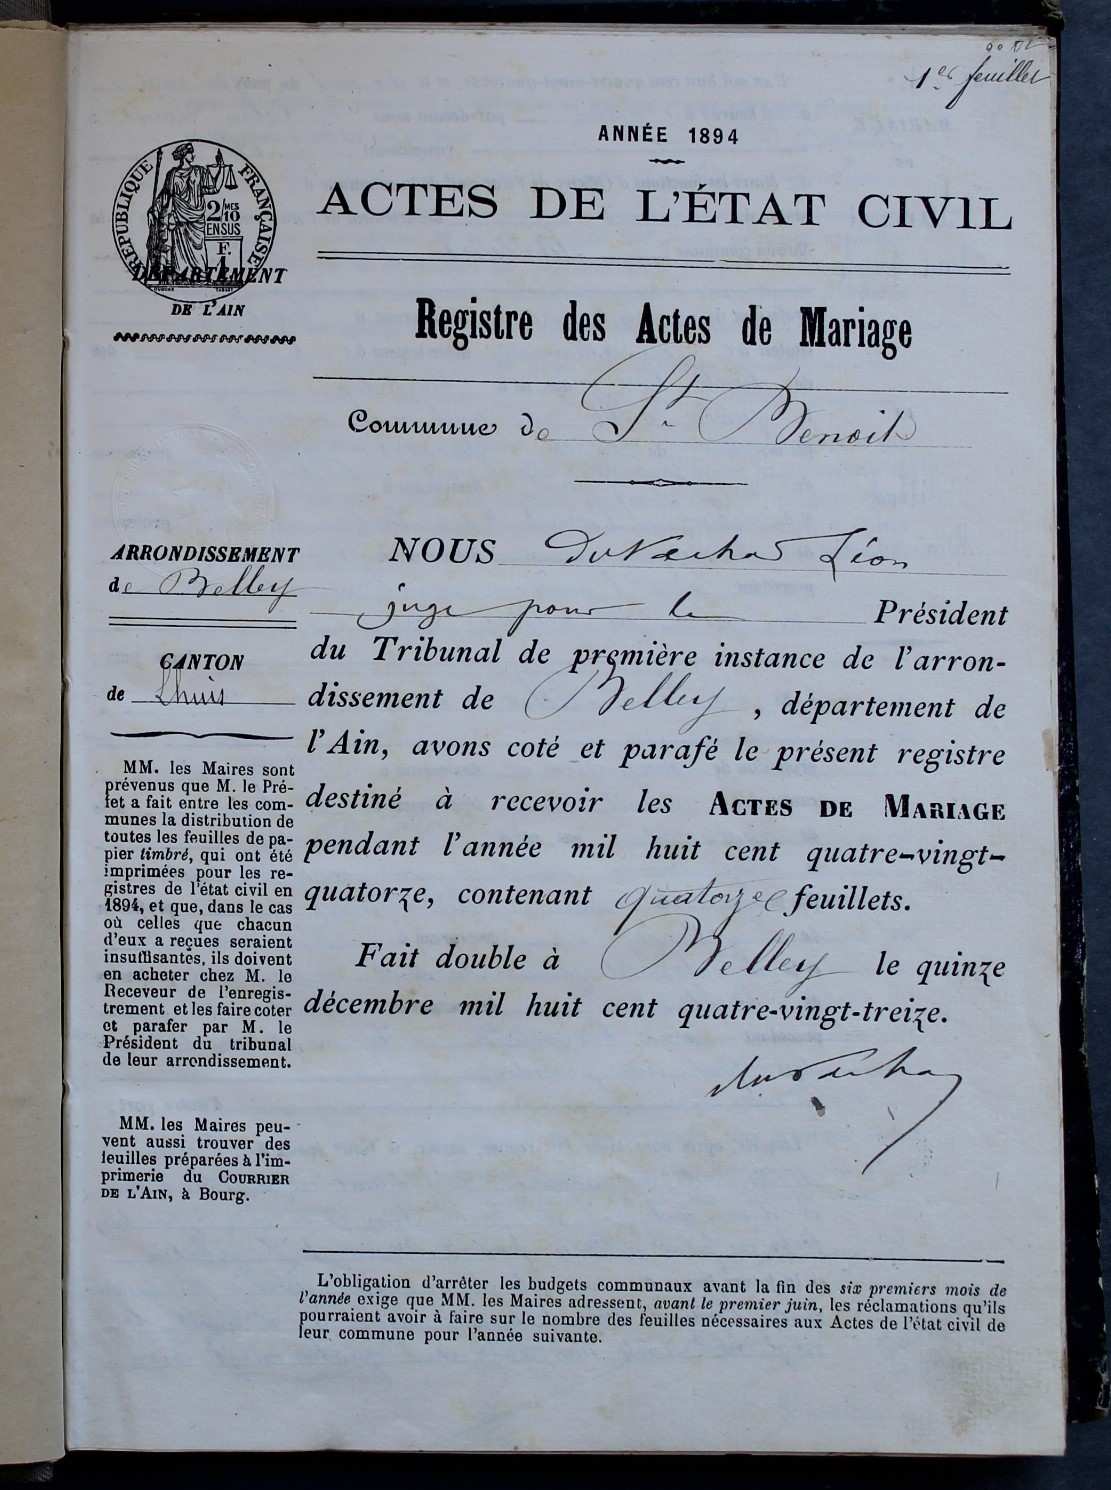 1er feuillet
ANNÉE 1894
ACTES DE L'ÉTAT CIVIL
RÉPUBLIQUE FRANÇAISE
2 MES
10
EN SUS
F.
1
DÉPARTEMENT
DE L'AIN
Registre des Actes de Mariage
Commune de St Benoit
ARRONDISSEMENT
de Belley
CANTON
de Lhuis
MM. les Maires sont
prévenus que M. le Pré-
fet a fait entre les com-
munes la distribution de
toutes les feuilles de pa-
pier timbré, qui ont été
imprimées pour les re-
gistres de l'état civil en
1894, et que, dans le cas
où celles que chacun
d'eux a reçues seraient
insuffisantes, ils doivent
en acheter chez M. le
Receveur de l'enregis-
trement et les faire coter
et parafer par M. le
Président du tribunal
de leur arrondissement.
MM. les Maires peu-
vent aussi trouver des
feuilles préparées à l'im-
primerie du COURRIER
DE L'AIN, à Bourg.
NOUS Léon
juge pour le Président
du Tribunal de première instance de l'arron-
dissement de Belley, département de
l'Ain, avons coté et parafé le présent registre
destiné à recevoir les ACTES DE MARIAGE
pendant l'année mil huit cent quatre-vingt-
quatorze, contenant quatorze feuillets.
Fait double à Belley le quinze
décembre mil huit cent quatre-vingt-treize.
L'obligation d'arrêter les budgets communaux avant la fin des six premiers mois de
l'année exige que MM. les Maires adressent, avant le premier juin, les réclamations qu'ils
pourraient avoir à faire sur le nombre des feuilles nécessaires aux Actes de l'état civil de
leur commune pour l'année suivante.